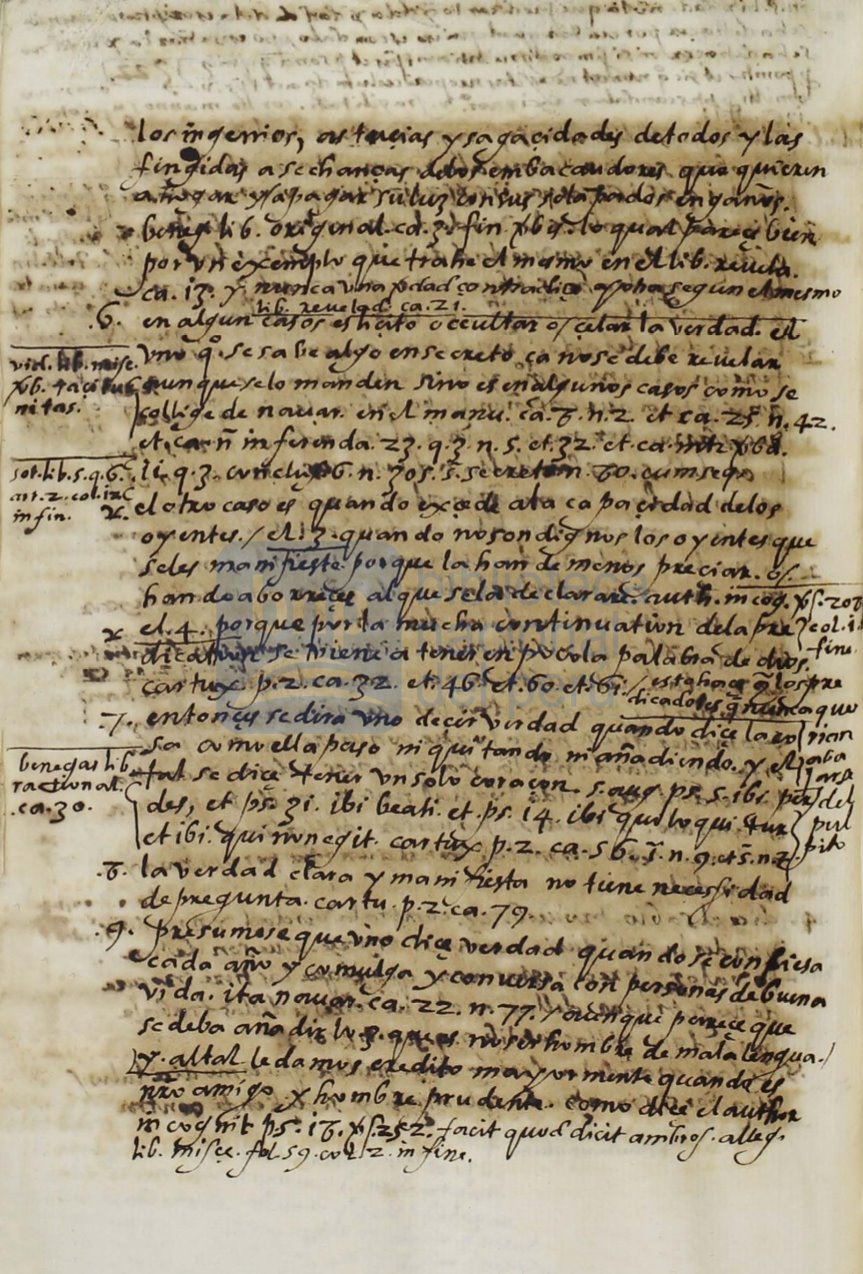 los ingenios, astucias y sagacidades de todos y las
fingidas asechanças delos embacaudores que quieren
ahogar y apagar su luz con sus solapados engaños.
beneg. lib. original. ca. 3. fin lo qual pareçe bien
por vn exemplo que trahe el mesmo en el lib. revela.
ca. 13. y nunca una verdad contradiçe a otra segun el mesmo
lib. revelad. ca. 21.
.6. en algun casos es liçito occultar o çelar la verdad. el
vid. lib. misç. vno q.º se sabe algo en secreto ca no se debe revelar
vb. taciturnitas. aunque se lo manden sino es en algunos casos como se
collige de navar. en el manu. ca. 8. n. 2. et ca. 25. n. 42.
et. ca. inferenda. 23. q. 3. n. 5. et. 32. et. ca.
sot. lib. 5. q. 6. art. 2. col. in fin.
li. q. 3. conclu. 6. n. 305. secretum. 80. cum seq.
el otro caso es quando exçede ala capaçidad delos
oyentes. / el. 3. quando no son dignos los oyentes que
seles manifieste porque la han de menospreciar. o
han de aborreçer al que sela declarare. auth. incog. 208
col. 1. fine
el. 4. porque por la mucha continuation dela pre
dication se viene a tener en poco la palabra de dios.
cartux. p. 2. ca. 32. et. 46. et. 60. et. 61. / esto haçe q los pre
dicadores q nunca que
rian
.7. entonçes se dira vno decir verdad quando diçe la co
sa como ella paso ni quitando ni añadiendo. y el
benegas lib. rational. ca. 30.
tal se diçe tener vn solo coraçon. s. aug. ps. 5. ibi per
des, et ps. 31. ibi beati. et ps. 14. ibi qui loquitur
del pul pito
et ibi. qui non egit. cartux p. 2. ca. 56. n. 9. et n. 2.
.8. la verdad clara y manifiesta no tiene necessidad
de pregunta. cartu. p. 2. ca. 79.
.9. presumese que vno diçe verdad quando se confiesa
cada año y comulga y conversa con personas de buena
vida. ita navar. ca. 22. n. 77. / aunque pareçe que
se deba añadir lo 3. que es no ser hombre de mala lengua. /
y. al tal le damos credito mayormente quando es
nro amigo y hombre prudente. como diçe el author
incognit ps. 18. 252. facit quod dicit ambros. alleg.
lib. misçe. fol. 59. col. 2. in fine.